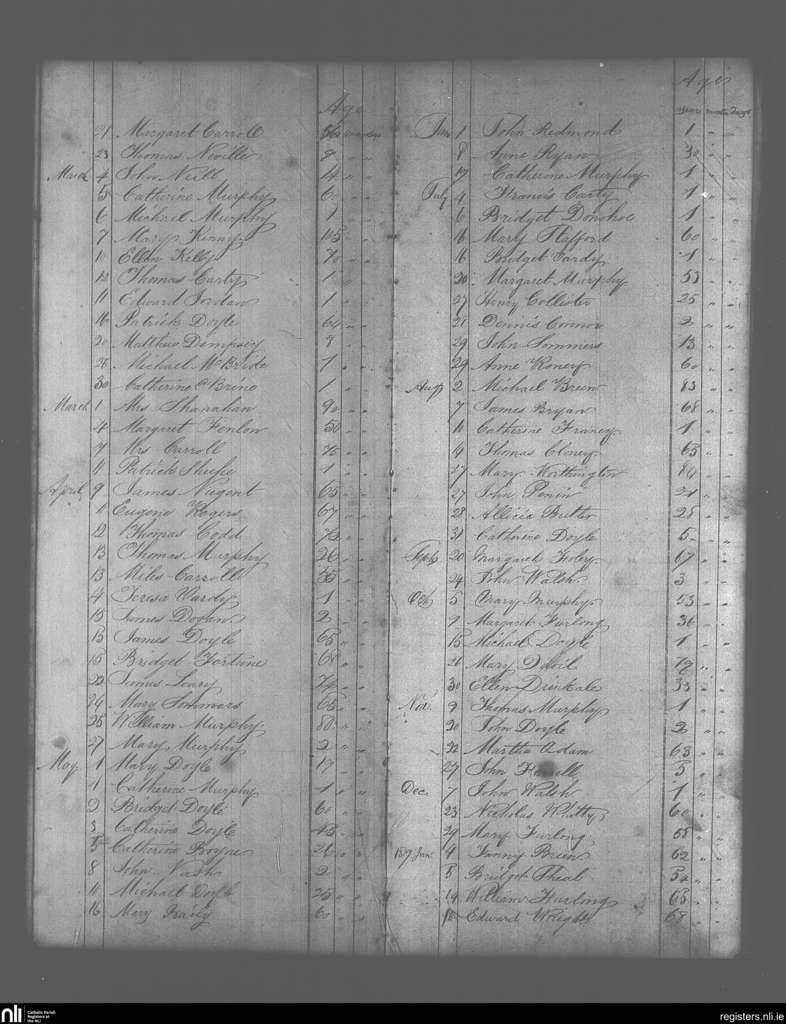 Age
21 Margaret Carroll
23 Thomas Neville 9
March 4 John Neill 14
5 Catherine Murphy 60
6 Michael Murphy 1
7 Mary Kenny 105
10 Ellen Kelly 70
12 Thomas Carty 1
11 Edward Jordan 1
16 Patrick Doyle 64
20 Matthew Dempsey 9
28 Michael McBride 1
30 Catherine O Brine 1
March 1 Mrs Shanahan 90
4 Margaret Fenlon 50
7 Mrs Carroll 75
11 Patrick 1
April 9 James Nugent 65
11 Eugene Rogers 67
12 Thomas Codd 72
13 Thomas Murphy 26
13 Miles Carroll 35
4 Teresa Vardy 1
13 James Dogan 2
15 James Doyle 65
15 Bridget Fortune 68
22 James Leary 74
24 Mary Sommers 65
26 William Murphy 80
27 Mary Murphy 2
May 1 Mary Doyle 17
1 Catherine Murphy 1
2 Bridget Doyle 60
3 Catherine Doyle 45
5 Catherine Boyne 26
8 John Nash 2
11 Michael Doyle 25
16 Mary 60
Age
years months Days
June 1 John Redmond 1
8 Anne Ryan 30
17 Catherine Murphy 1
July 4 Francis Carty 1
6 Bridget Donohoe 1
16 Mary Stafford 60
16 Bridget Vardy 1
20 Margaret Murphy 53
27 Henry Colloster 25
21 Dennis Connor 2
29 John Sommers 13
29 Anne Roney 60
Augt 2 Michael Breen 83
7 James Bryan 68
11 Catherine Franey 1
14 Thomas Cloney 65
27 Mary Worthington 84
27 John 21
28 Allicia Butler 28
31 Catherine Doyle 5
Septr 20 Margaret Foley 67
24 John Walsh 3
Oct 5 Mary Murphy 53
9 Margaret Furlong 36
15 Michael Doyle 1
26 Mary 79
30 Ellen Drinkale 33
Nov. 9 Thomas Murphy 1
20 John Doyle 2
22 Martha Adam 63
27 John 5
Dec. 7 John Walsh 1
23 Nicholas Whitty 60
29 Mary Furlong 65
Jan 4 Fanny Breen 62
5 Bridget Theal 52
14 William Furlong 63
18 Edward Wright 68
nli
Catholic Parish
Registers at
the NLI
registers.nli.ie